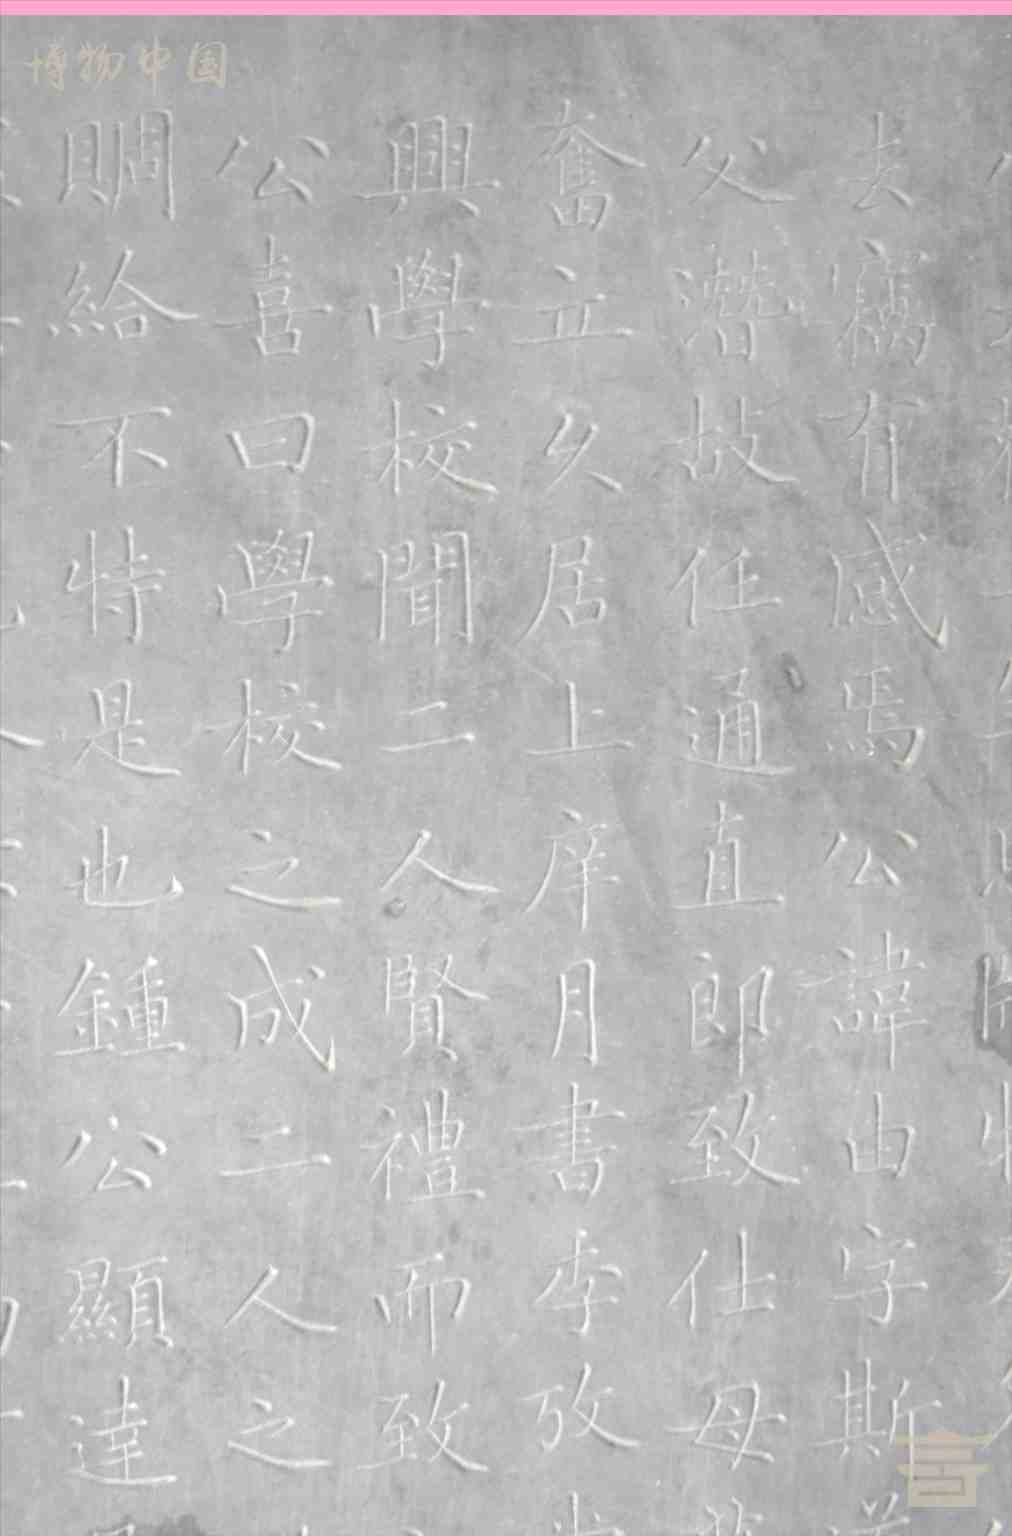 博物中国
去竊有感焉公諱由字斯
父潛故任通直郎致仕母
奮立久居上庠月書季攷
興學校聞二人賢禮而致
公喜曰學校之成二人之
賙給不特是也鍾公顯達